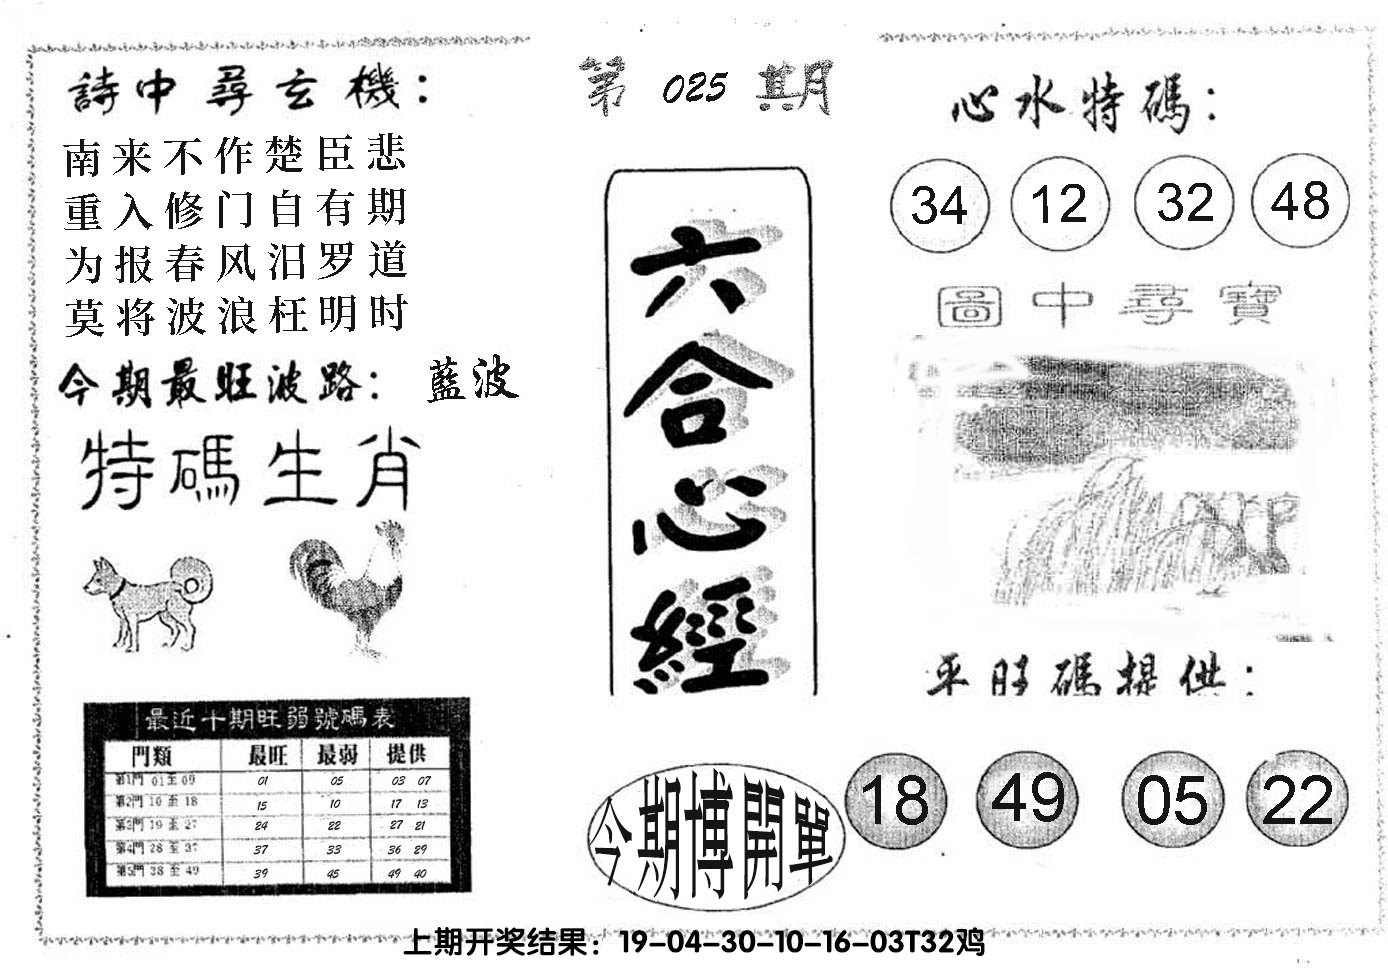 詩中尋玄機：
南来不作楚臣悲
重入修门自有期
为报春风汨罗道
莫将波浪枉明时
今期最旺波路：藍波
特碼生肖
最近十期旺弱號碼表
門類 最旺 最弱 提供
第1門 01至09 01 05 03 07
第2門 10至18 15 10 17 13
第3門 19至27 24 22 27 21
第4門 28至37 37 33 36 29
第5門 38至49 39 45 49 40
第025期
六合心經
今期博開單
心水特碼：
34 12 32 48
圖中尋寶
平旺碼提供：
18 49 05 22
上期开奖结果：19-04-30-10-16-03T32鸡